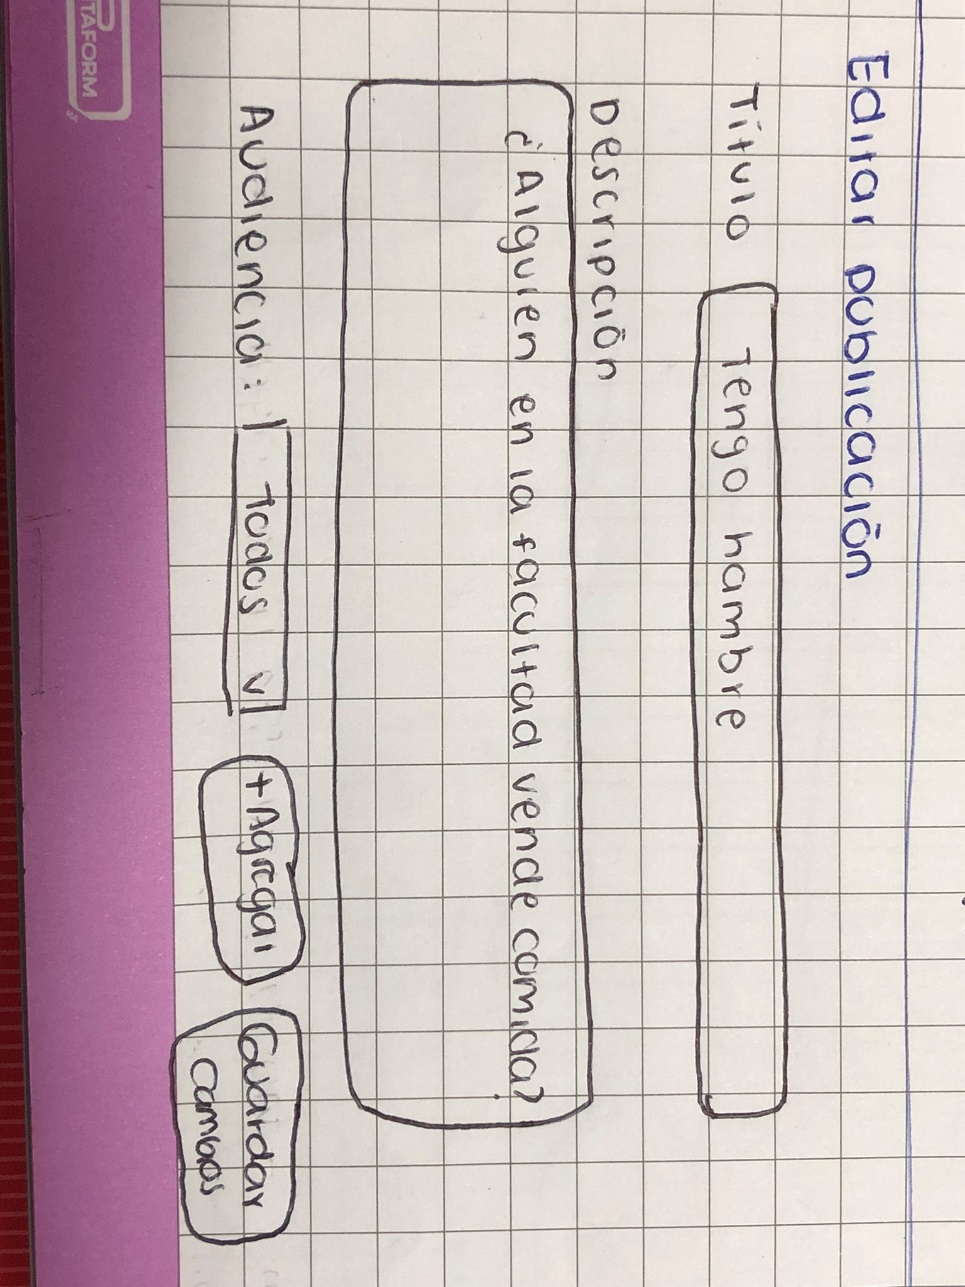 Editar publicación
Título Tengo hambre
Descripción
¿Alguien en la facultad vende comida?
Audiencia: Todos v + Agregar Guardar
cambios
TAFORM